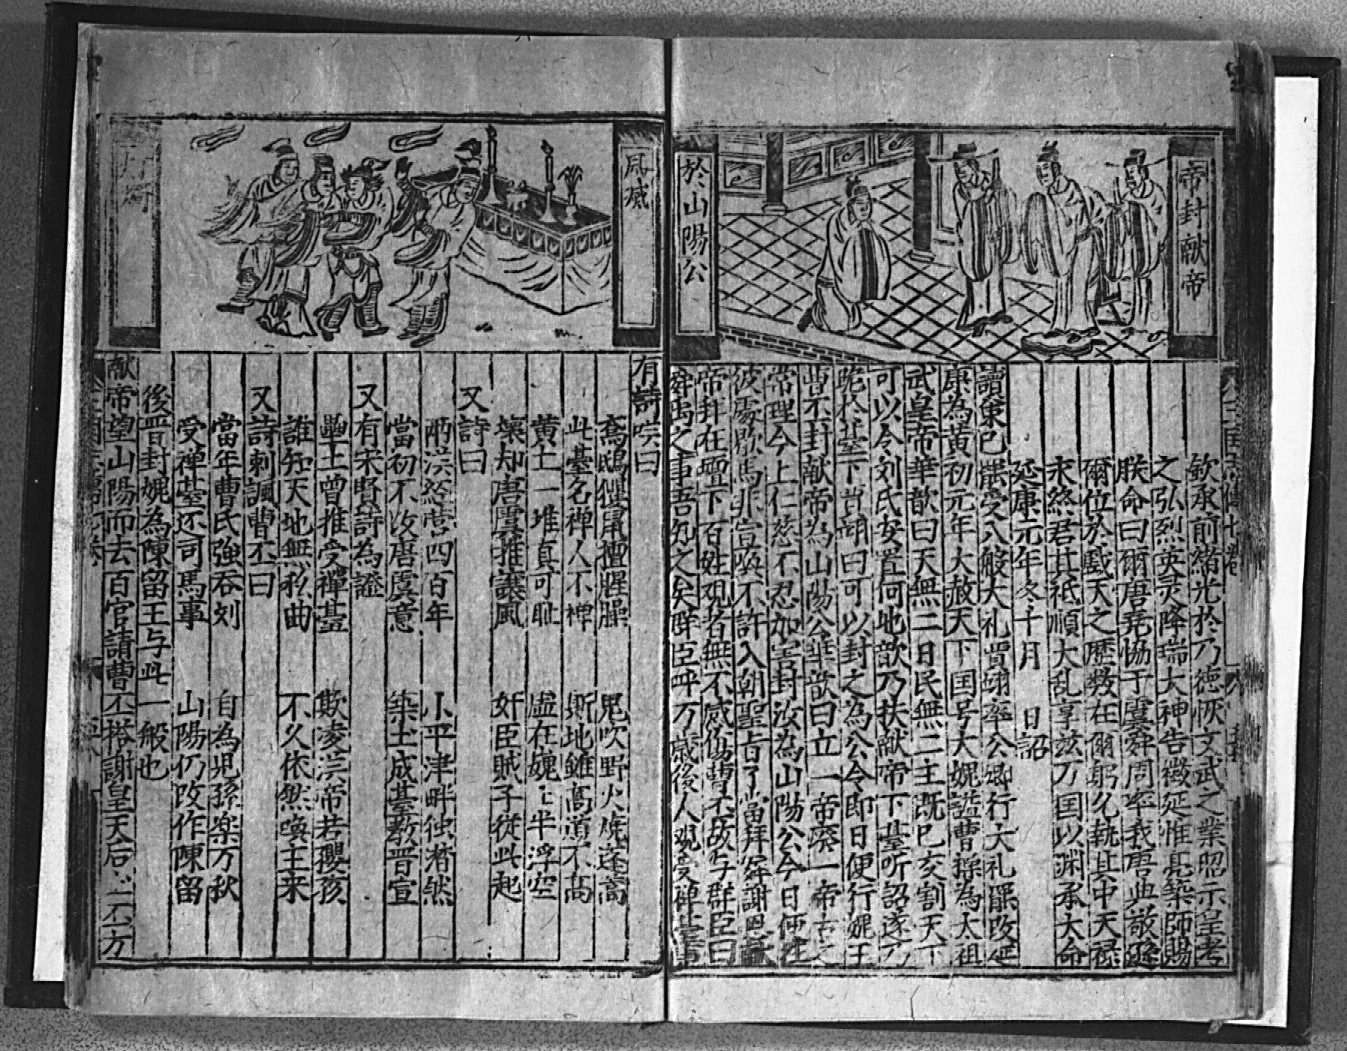 帝封献帝
於山陽公
欽承前緒光於乃德恢文武之業昭示皇考
之弘烈英灵降瑞大神告徵延惟亮築師賜
朕命曰爾唐堯恊于虞舜周率我唐典敬遜
爾位於戱天之歷数在爾躬允執其中天禄
永終君其祗順大乱享兹万国以渊承大命
延康元年冬十月　日詔
讀策已罷受八般大礼賈翊率公卿行大礼罷改延
康為黄初元年大赦天下国号大魏謚曹操為太祖
武皇帝華歆曰天無二日民無二主既已亥割天下
可以令刘氏安置何地歆乃扶献帝下䑓听詔遂
跪於䑓下賈翊曰可以封之為公今即日便行魏王
曹丕封献帝為山陽公華歆曰立一帝廢一帝古之
常理今上仁慈不忍加害封汝為山陽公今日便往
彼處歇馬非宣喚不許入朝聖旨了當拜舜謝恩献
帝拜在壇下百姓观者無不感傷曹丕故与群臣曰
舜禹之事吾知之矣群臣呼万歲後人观受禅䑓
風威
有詩嘆曰
鬼吹野火燒蓬蒿
此䑓名禅人不禅　斯地雖高道不高
黄土一堆真可耻　虚在魏ミ半浮空
壞却唐虞推譲風　奸臣賊子従此起
又詩曰
兩漢経营四百年　小平津畔独潸然
當初不汝唐虞意　築土成䑓效晋宣
又有宋賢詩為證
壘土曾推受禪䑓　欺凌漢帝若嬰孩
誰知天地無私曲　不久依然喚主来
又詩刺諷曹丕曰
當年曹氏強吞刘　自為児孫楽万秋
受禅䑓还司馬事　山陽仍改作陳留
後晋封魏為陳留王与此一般也
献帝望山陽而去百官請曹丕荅謝皇天后土丕方